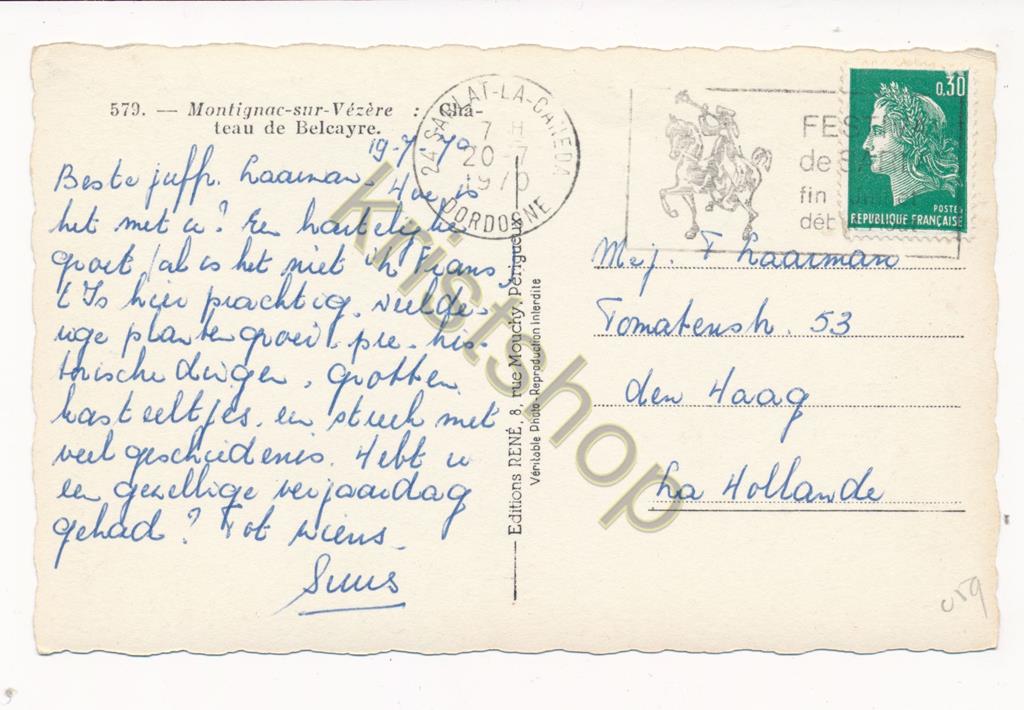 579. — Montignac-sur-Vézère : Châ-
teau de Belcayre.
19-7-70
Beste juffr. Laarman. Hoe is
het met u? Een hartelijke
groet /al is het niet in Frans,
't Is hier prachtig. weelde-
rige plantengroei. pre-his-
torische dingen, grotten
kasteeltjes, een streek met
veel geschiedenis. Hebt u
een gezellige verjaardag
gehad? Tot ziens.
24 SARLAT-LA-CANEDA
7 H
20-7
1970
DORDOGNE
FEST
de SA
fin
déb
0,30
POSTES
REPUBLIQUE FRANÇAISE
Editions RENÉ, 8, rue Mouchy, Périgueux
Véritable Photo - Reproduction Interdite
Mej. F Laarman
Tomatenstr. 53
den Haag
La Hollande
kristshop